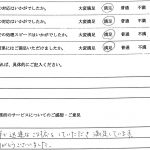 対応はいかがでしたか。 大変満足 満足 普通 不満
でしたか。 大変満足 満足 普通 不満
の処理スピードはいかがでしたか。 大変満足 満足 普通 不満
果にはご満足いただけましたか。 大変満足 満足 普通 不満
れば、具体的にご記入ください。
務所のサービスについてのご感想・ご意見
迅速に対応していただき満足しています
がとうございました。